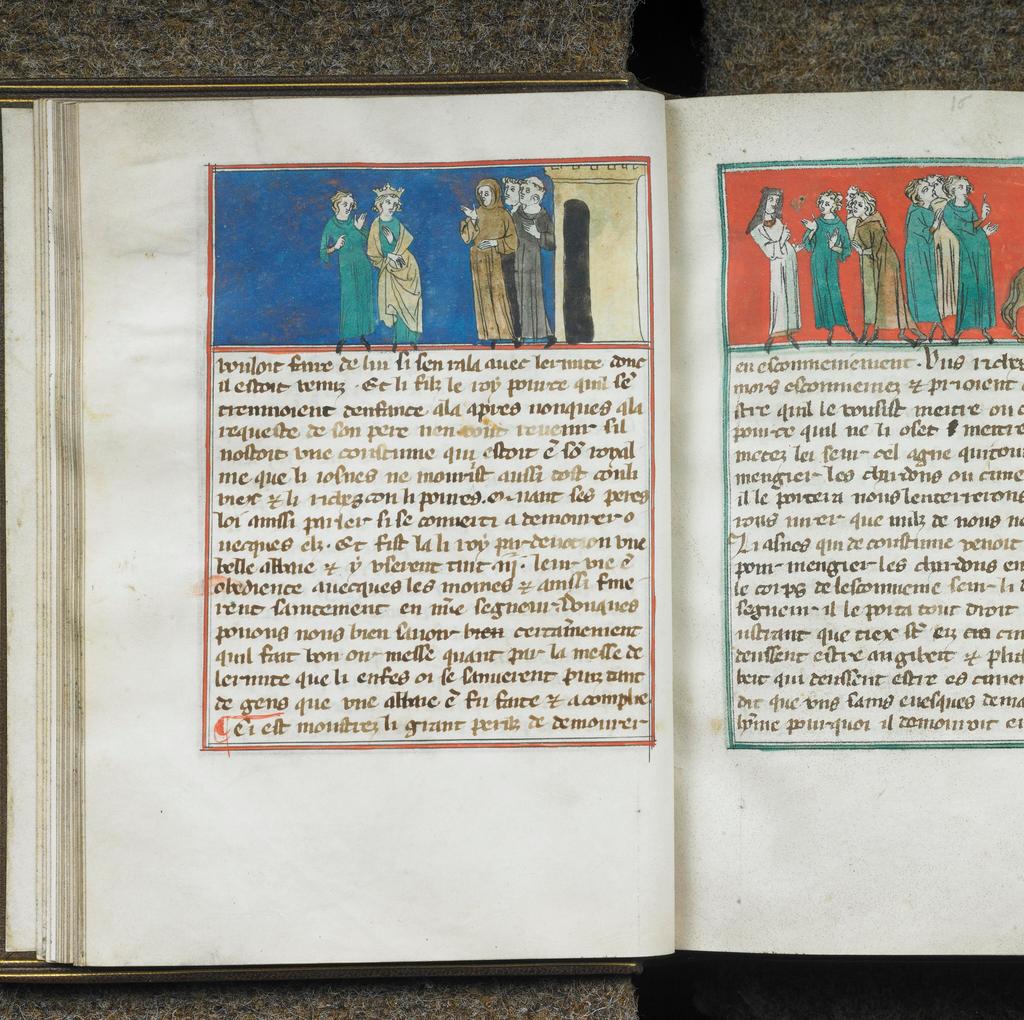 vouloit faire de lui si sen rala auec lermite dont
il estoit venuz · Et li filz le roy pource quil se
trenmoient denfance ala apres nonques a la
requeste de son pere nen vout reuenir sil
nostoit vne coustume qui estoit ē sō roial
me que li iosnes ne mourist aussi tost con li
viex & li riches con li poures. Quant ses peres
loi ainssi parler si se conuerti a demourer o
uecques elz · Et fist la li roy par deuocion vne
belle abbaie & y vserent tuit .iij. leur vie ē
obedience auecques les moines & ainssi fine
rent saintement en nr̄e segneur. Donques
pouons nous bien sauoir bien certainement
quil fait bon oir messe quant par la messe de
lermite que li enfes oi se sauuerent puiz tant
de gens que vne abbaie ē fu faite & acomplie
Ceci est moustrez li grant perilz de demourer
16
en escommeniement · Vns riches
mors escommeniez & prioient
stre quil le vousist metre ou c
pource quil ne li oset metre
metez lei seur cel asgne qui tou
mengier les chardons ou cime
il le portera nous lenterrerons
vous iurer que nulz de nous ne
Li asnes qui de coustume venoit
pour mengier les chardons en
le corps de lescommenie seur li d
segneur il le porta tout droit
ustrant que tiex
deussent estre au gibeit & plus
beit qui deussent estre es cimen
dit que vns sains euesques dema
pourquoi il demouroit en